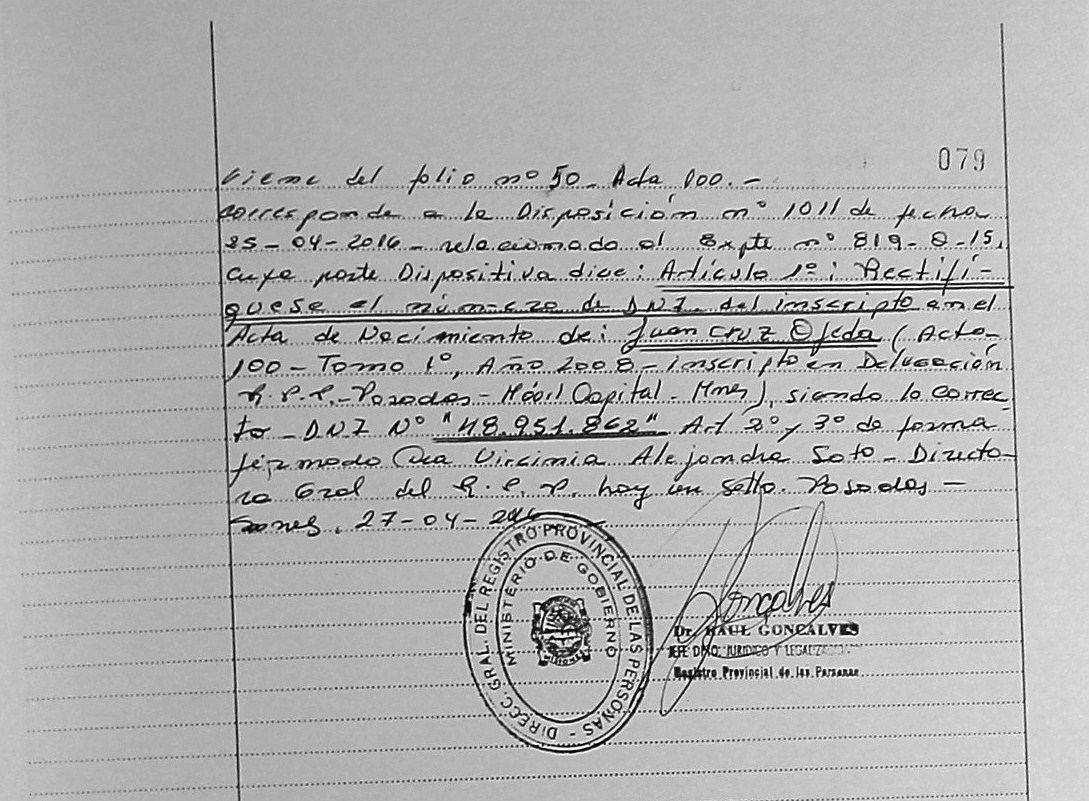 079
Viene del folio nº 50 - Acta 100. -
Corresponde a la Disposición nº 1011 de fecha
25-04-2016 - relacionado al Expte nº 819-O-15,
cuya parte Dispositiva dice: Artículo 1º: Rectifí-
quese el número de DNI del inscripto en el
Acta de Nacimiento de: Juan Cruz Ojeda (Acta
100 - Tomo 1º, Año 2008 - inscripto en Delegación
R.P.P. - Posadas - Móvil Capital - Mnes), siendo lo correc-
to - DNI Nº "48.951.862" Art 2º y 3º de forma
firmado Dra Virginia Alejandra Soto - Directo-
ra Gral del R.P.P. hay un sello. Posadas -
27-04-2016
DIRECC. GRAL. DEL REGISTRO PROVINCIAL DE LAS PERSONAS -
MINISTERIO DE GOBIERNO
MISIONES
Gonçalves
Dr. RAUL GONCALVES
JEFE DPTO. JURIDICO Y LEGALIZACIONES
Registro Provincial de las Personas